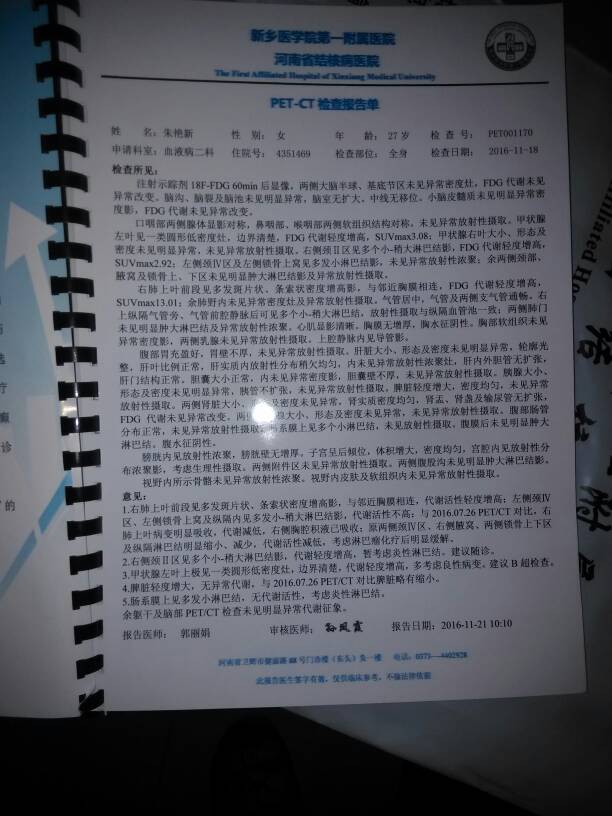 新乡医学院第一附属医院
河南省结核病医院
The First Affiliated Hospital of Xinxiang Medical University
PET-CT 检查报告单
姓 名：朱艳新 性 别：女 年 龄：27 岁 检 查 号：PET001170
申请科室：血液病二科 住院号：4351469 检查部位：全身 检查日期：2016-11-18
检查所见：
注射示踪剂 18F-FDG 60min 后显像，两侧大脑半球、基底节区未见异常密度灶，FDG 代谢未见
异常改变。脑沟、脑裂及脑池未见明显异常，脑室无扩大，中线无移位。小脑皮髓质未见明显异常密
度影，FDG 代谢未见异常改变。
口咽部两侧腺体显影对称，鼻咽部、喉咽部两侧软组织结构对称，未见异常放射性摄取。甲状腺
左叶见一类圆形低密度灶，边界清楚，FDG 代谢轻度增高，SUVmax3.08；甲状腺右叶大小、形态及
密度未见明显异常，未见异常放射性摄取。右侧颈ⅡⅠ区见多个小-稍大淋巴结影，FDG 代谢轻度增高，
SUVmax2.92；左侧颈Ⅳ区及左侧锁骨上窝见多发小淋巴结影，未见异常放射性浓聚；余两侧颈部、
腋窝及锁骨上、下区未见明显肿大淋巴结影及异常放射性摄取。
右肺上叶前段见多发斑片状、条索状密度增高影，与邻近胸膜相连，FDG 代谢轻度增高，
SUVmax13.01；余肺野内未见异常密度灶及异常放射性摄取。气管居中，气管及两侧支气管通畅。右
上纵隔气管旁、气管前腔静脉后可见多个小-稍大淋巴结，放射性摄取与纵隔血管池一致；两侧肺门
未见明显肿大淋巴结及异常放射性浓聚。心肌显影清晰。胸膜无增厚，胸水征阴性。胸部软组织未见
异常密度影，两侧乳腺未见异常放射性摄取。上腔静脉内见导管影。
腹部胃充盈好，胃壁不厚，未见异常放射性摄取。肝脏大小、形态及密度未见明显异常，轮廓光
整，肝叶比例正常，肝实质内放射性分布稍欠均匀，内未见异常放射性浓聚灶，肝内外胆管无扩张，
肝门结构正常。胆囊大小正常，内未见异常密度影，胆囊壁不厚，未见异常放射性摄取。胰腺大小、
形态及密度未见明显异常，胰管不扩张，未见异常放射性摄取。脾脏轻度增大，密度均匀，未见异常
放射性摄取。两侧肾脏大小、密度未见异常，肾实质密度均匀，肾盂、肾盏及输尿管无扩张，
FDG 代谢未见异常改变。两腺大小、形态及密度未见异常，未见异常放射性摄取。腹部肠管
分布正常，未见异常放射性摄取。肠系膜上见多个小淋巴结，未见放射性摄取。腹膜后未见明显肿大
淋巴结。腹水征阴性。
膀胱内见放射性浓聚，膀胱壁无增厚。子宫呈后倾位，体积增大，密度均匀，宫腔内见放射性分
布浓聚影，考虑生理性摄取。两侧附件区未见异常放射性摄取。两侧腹股沟未见明显肿大淋巴结影。
视野内所示骨骼未见异常放射性浓聚。视野内皮肤及软组织内未见异常放射性摄取。
意见：
1.右肺上叶前段见多发斑片状、条索状密度增高影，与邻近胸膜相连，代谢活性轻度增高；左侧颈Ⅳ
区、左侧锁骨上窝及纵隔内见多发小-稍大淋巴结影，代谢活性不高；与 2016.07.26 PET/CT 对比，右
肺上叶病变明显吸收，代谢减低，右侧胸腔积液已吸收；原两侧颈Ⅳ区、右侧腋窝、两侧锁骨上下区
及纵隔淋巴结明显缩小、减少，代谢活性减低，考虑淋巴瘤化疗后明显缓解。
2.右侧颈Ⅱ区见多个小-稍大淋巴结影，代谢轻度增高，暂考虑炎性淋巴结。建议随诊。
3.甲状腺左叶上极见一类圆形低密度灶，边界清楚，代谢轻度增高，多考虑良性病变。建议 B 超检查。
4.脾脏轻度增大，无异常代谢，与 2016.07.26 PET/CT 对比脾脏略有缩小。
5.肠系膜上见多发小淋巴结，无代谢活性，考虑炎性淋巴结。
余躯干及脑部 PET/CT 检查未见明显异常代谢征象。
报告医师： 郭丽娟 审核医师：孙凤霞 报告日期：2016-11-21 10:10
河南省卫辉市健康路 88 号门诊楼（东头）负一楼 电话：0373—4402928
此报告医生签字有效，仅供临床参考，不做法律依据